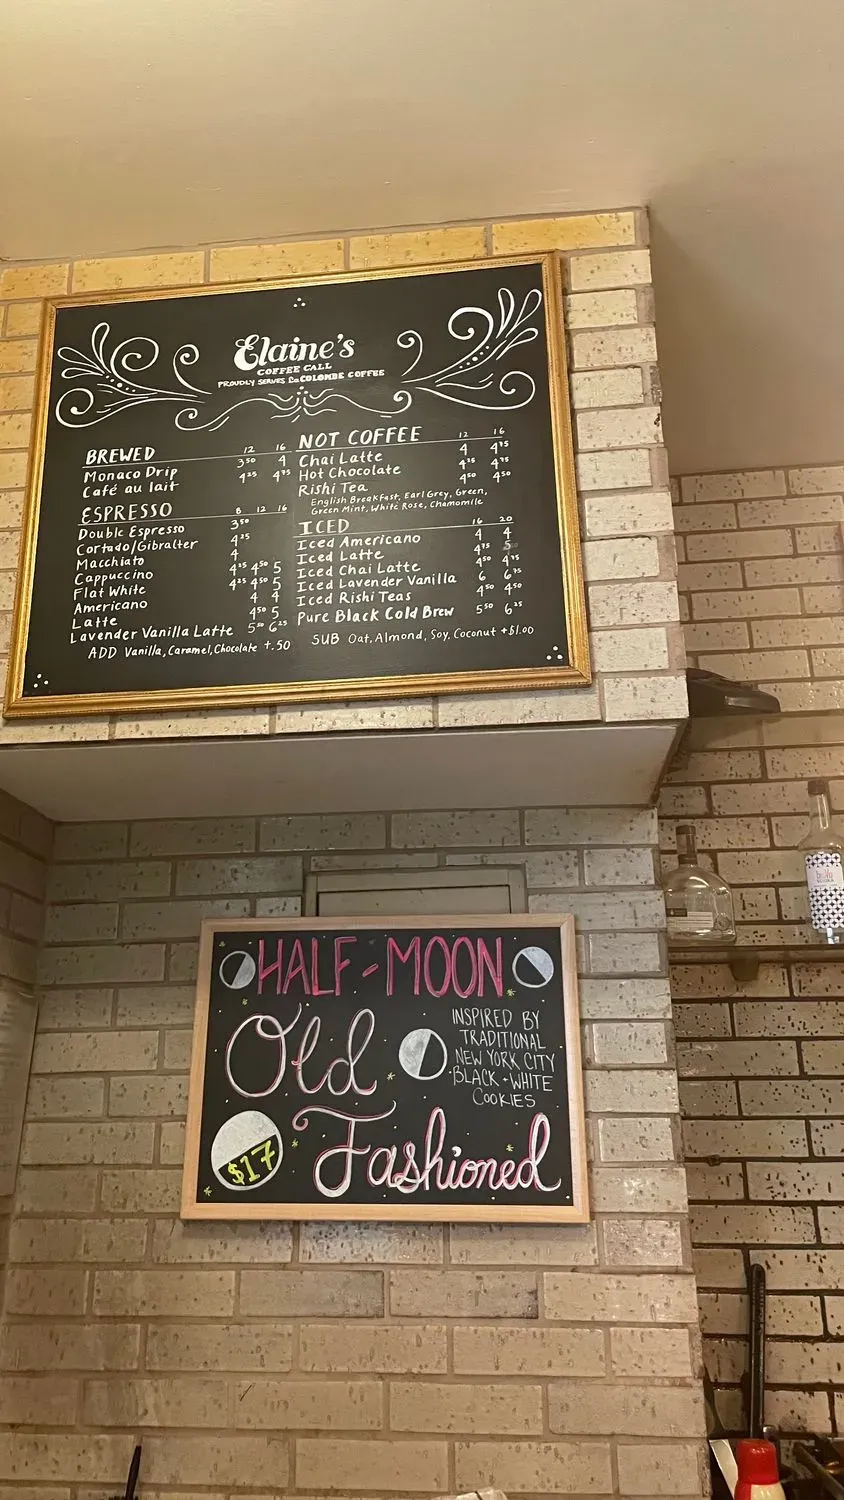 Elaine's
COFFEE CALL
PROUDLY SERVES La COLOMBE COFFEE
BREWED 12 16
Monaco Drip 3⁵⁰ 4
Café au lait 4²⁵ 4⁷⁵
ESPRESSO 8 12 16
Double Espresso 3⁵⁰
Cortado/Gibralter 4²⁵
Macchiato 4
Cappuccino 4²⁵ 4⁵⁰ 5
Flat White 4²⁵ 4⁵⁰ 5
Americano 4 4
Latte 4⁵⁰ 5
Lavender Vanilla Latte 5⁵⁰ 6²⁵
ADD Vanilla, Caramel, Chocolate +.50
NOT COFFEE 12 16
Chai Latte 4 4⁷⁵
Hot Chocolate 4²⁵ 4⁷⁵
Rishi Tea 4⁵⁰ 4⁵⁰
English Breakfast, Earl Grey, Green,
Green Mint, White Rose, Chamomile
ICED 16 20
Iced Americano 4 4
Iced Latte 4⁷⁵ 5
Iced Chai Latte 4⁵⁰ 4⁷⁵
Iced Lavender Vanilla 6 6⁷⁵
Iced Rishi Teas 4⁵⁰ 4⁵⁰
Pure Black Cold Brew 5⁵⁰ 6²⁵
SUB Oat, Almond, Soy, Coconut +$1.00
HALF-MOON
Old
Fashioned
INSPIRED BY
TRADITIONAL
NEW YORK CITY
BLACK + WHITE
COOKIES
$17